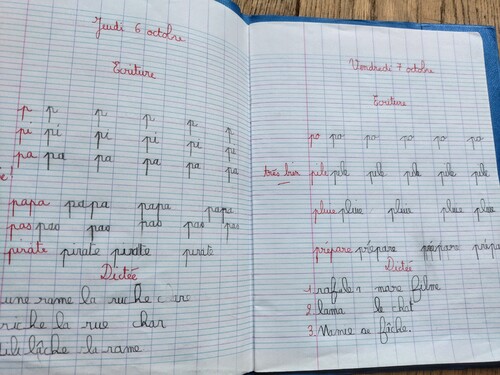 Jeudi 6 octobre
Ecriture
p p p p p p
pi pi pi pi pi pi
pa pa pa pa pa pa
papa papa papa papa
pas pas pas pas pas pas
pirate pirate pirate pirate
Dictée
une rame la ruche
riche la rue char
lâche la rame
Vendredi 7 octobre
Ecriture
po po po po po po
très bien pile pile pile pile pile pile
pluie pluie pluie pluie pluie
prépare prépare prépare
Dictée
1. rafale mare filme
2. lama le chat
3. Mamie se fâche.